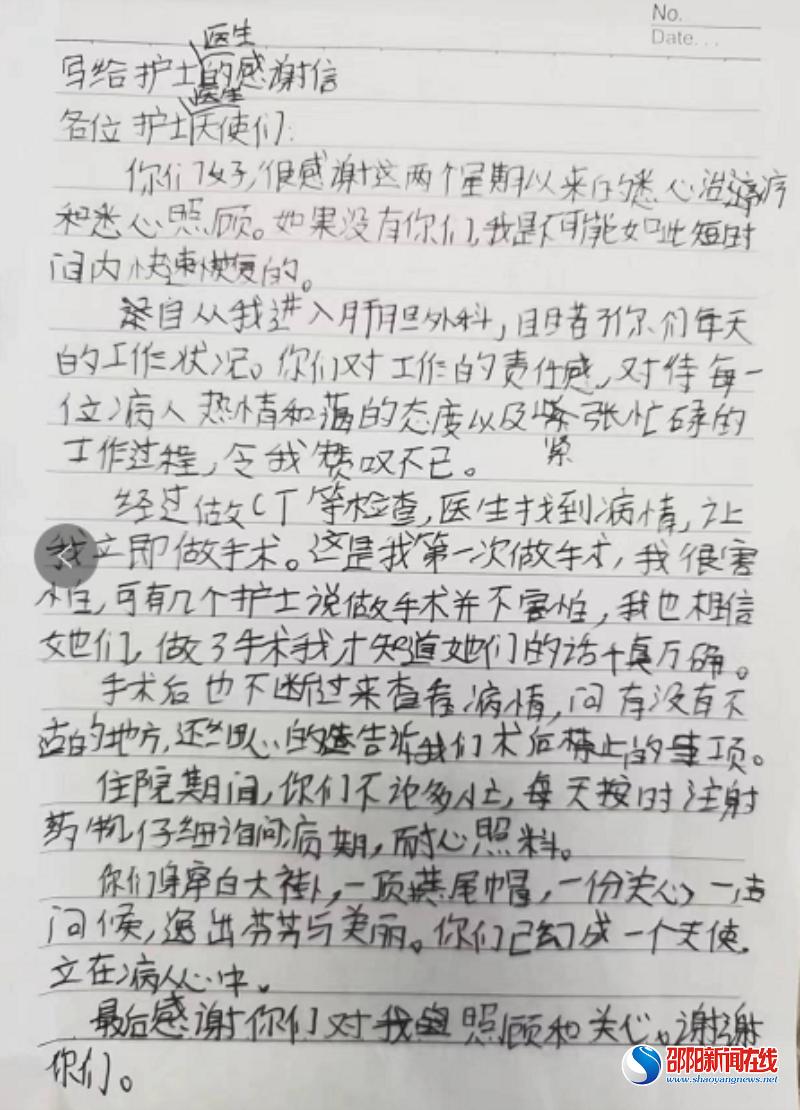 No.
Date...
医生
写给护士的感谢信
医生
各位护士天使们:
你们好,很感谢这两个星期以来的悉心治病
和悉心照顾。如果没有你们,我是不可能如此短时
间内快速恢复的。
自从我进入肝胆外科,目睹了你们每天
的工作状况。你们对工作的责任感,对待每一
位病人热情和蔼的态度以及紧张忙碌的
紧
工作过程,令我赞叹不已。
经过做CT等检查,医生找到病情,让
我立即做手术。这是我第一次做手术,我很害
怕,可有几个护士说做手术并不害怕,我也相信
她们,做了手术我才知道她们的话千真万确。
手术后也不断过来查看病情,问有没有不
适的地方,还细心的告诉我们术后禁止的事项。
住院期间,你们不论多忙,每天按时注射
药物,仔细询问病期,耐心照料。
你们身穿白大褂,一顶燕尾帽,一份关心,一声
问候,透出芬芳与美丽。你们已幻成一个天使,
立在病人心中。
最后感谢你们对我照顾和关心。谢谢
你们。
邵阳新闻在线
www.shaoyangnews.net